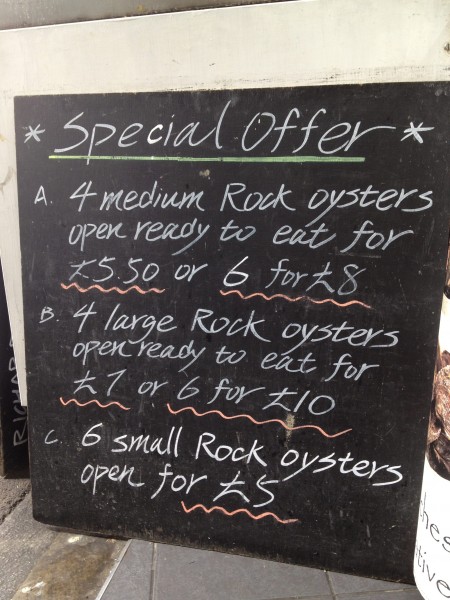 * Special Offer *
A. 4 medium Rock oysters
open ready to eat for
£5.50 or 6 for £8
B. 4 large Rock oysters
open ready to eat for
£7 or 6 for £10
C. 6 small Rock oysters
open for £5
RICHAR
hes
tive